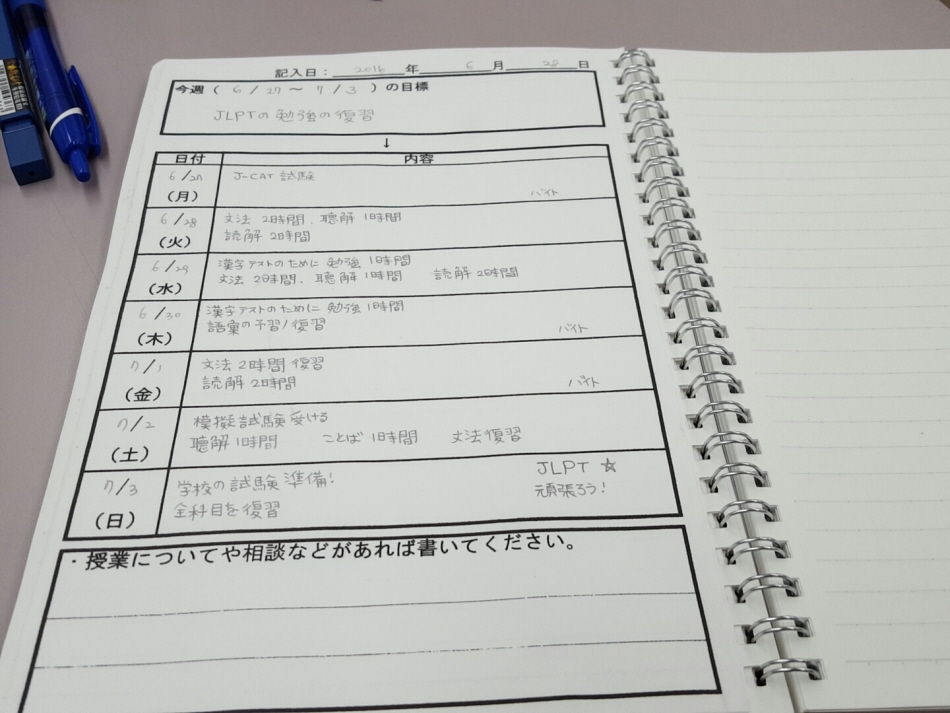 記入日：2016年 6月 28日
今週（ 6/27～7/3 ）の目標
JLPTの勉強の復習
↓
日付 内容
6/27
（月）
J-CAT 試験
バイト
6/28
（火）
文法 2時間、聴解 1時間
読解 2時間
6/29
（水）
漢字テストのために 勉強 1時間
文法 2時間、聴解 1時間 読解 2時間
6/30
（木）
漢字テストのために 勉強 1時間
語彙の予習/復習
バイト
7/1
（金）
文法 2時間 復習
読解 2時間
バイト
7/2
（土）
模擬試験受ける
聴解 1時間 ことば 1時間 文法復習
7/3
（日）
学校の試験準備！
全科目を復習
JLPT ☆
頑張ろう！
・授業についてや相談などがあれば書いてください。